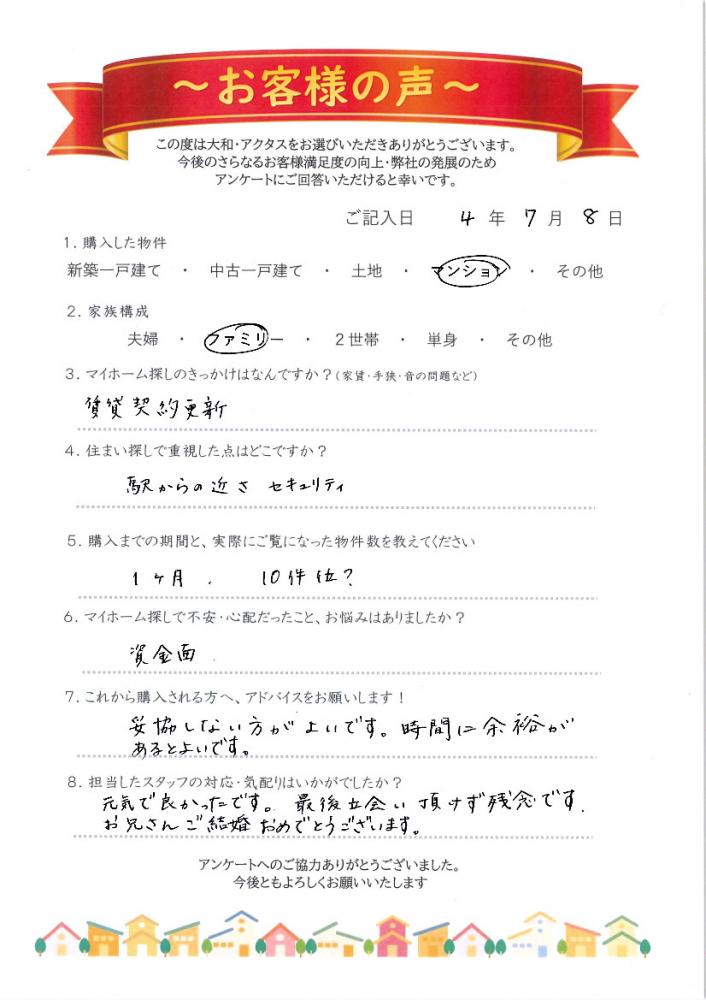 ～お客様の声～
この度は大和・アクタスをお選びいただきありがとうございます。
今後のさらなるお客様満足度の向上・弊社の発展のため
アンケートにご回答いただけると幸いです。
ご記入日 4 年 7 月 8 日
1. 購入した物件
新築一戸建て ・ 中古一戸建て ・ 土地 ・ マンション ・ その他
2. 家族構成
夫婦 ・ ファミリー ・ 2世帯 ・ 単身 ・ その他
3. マイホーム探しのきっかけはなんですか？(家賃・手狭・音の問題など)
賃貸契約更新
4. 住まい探しで重視した点はどこですか？
駅からの近さ セキュリティ
5. 購入までの期間と、実際にご覧になった物件数を教えてください
1ヶ月. 10件位？
6. マイホーム探しで不安・心配だったこと、お悩みはありましたか？
資金面.
7. これから購入される方へ、アドバイスをお願いします！
妥協しない方がよいです。時間に余裕が
あるとよいです。
8. 担当したスタッフの対応・気配りはいかがでしたか？
元気で良かったです。最後立会い頂けず残念です.
お兄さんご結婚おめでとうございます。
アンケートへのご協力ありがとうございました。
今後ともよろしくお願いいたします